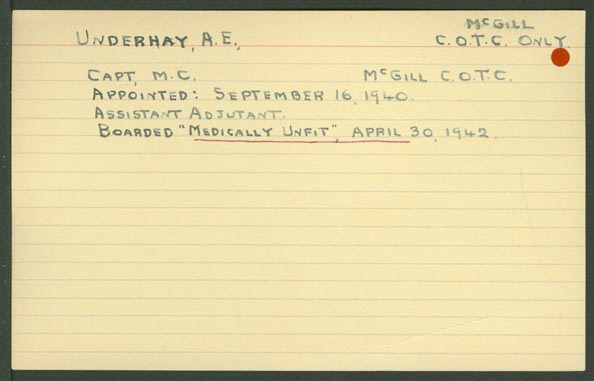 McGILL
UNDERHAY, A.E., C.O.T.C. ONLY.
CAPT, M.C. McGILL C.O.T.C.
APPOINTED: SEPTEMBER 16, 1940.
ASSISTANT ADJUTANT.
BOARDED "MEDICALLY UNFIT", APRIL 30, 1942.